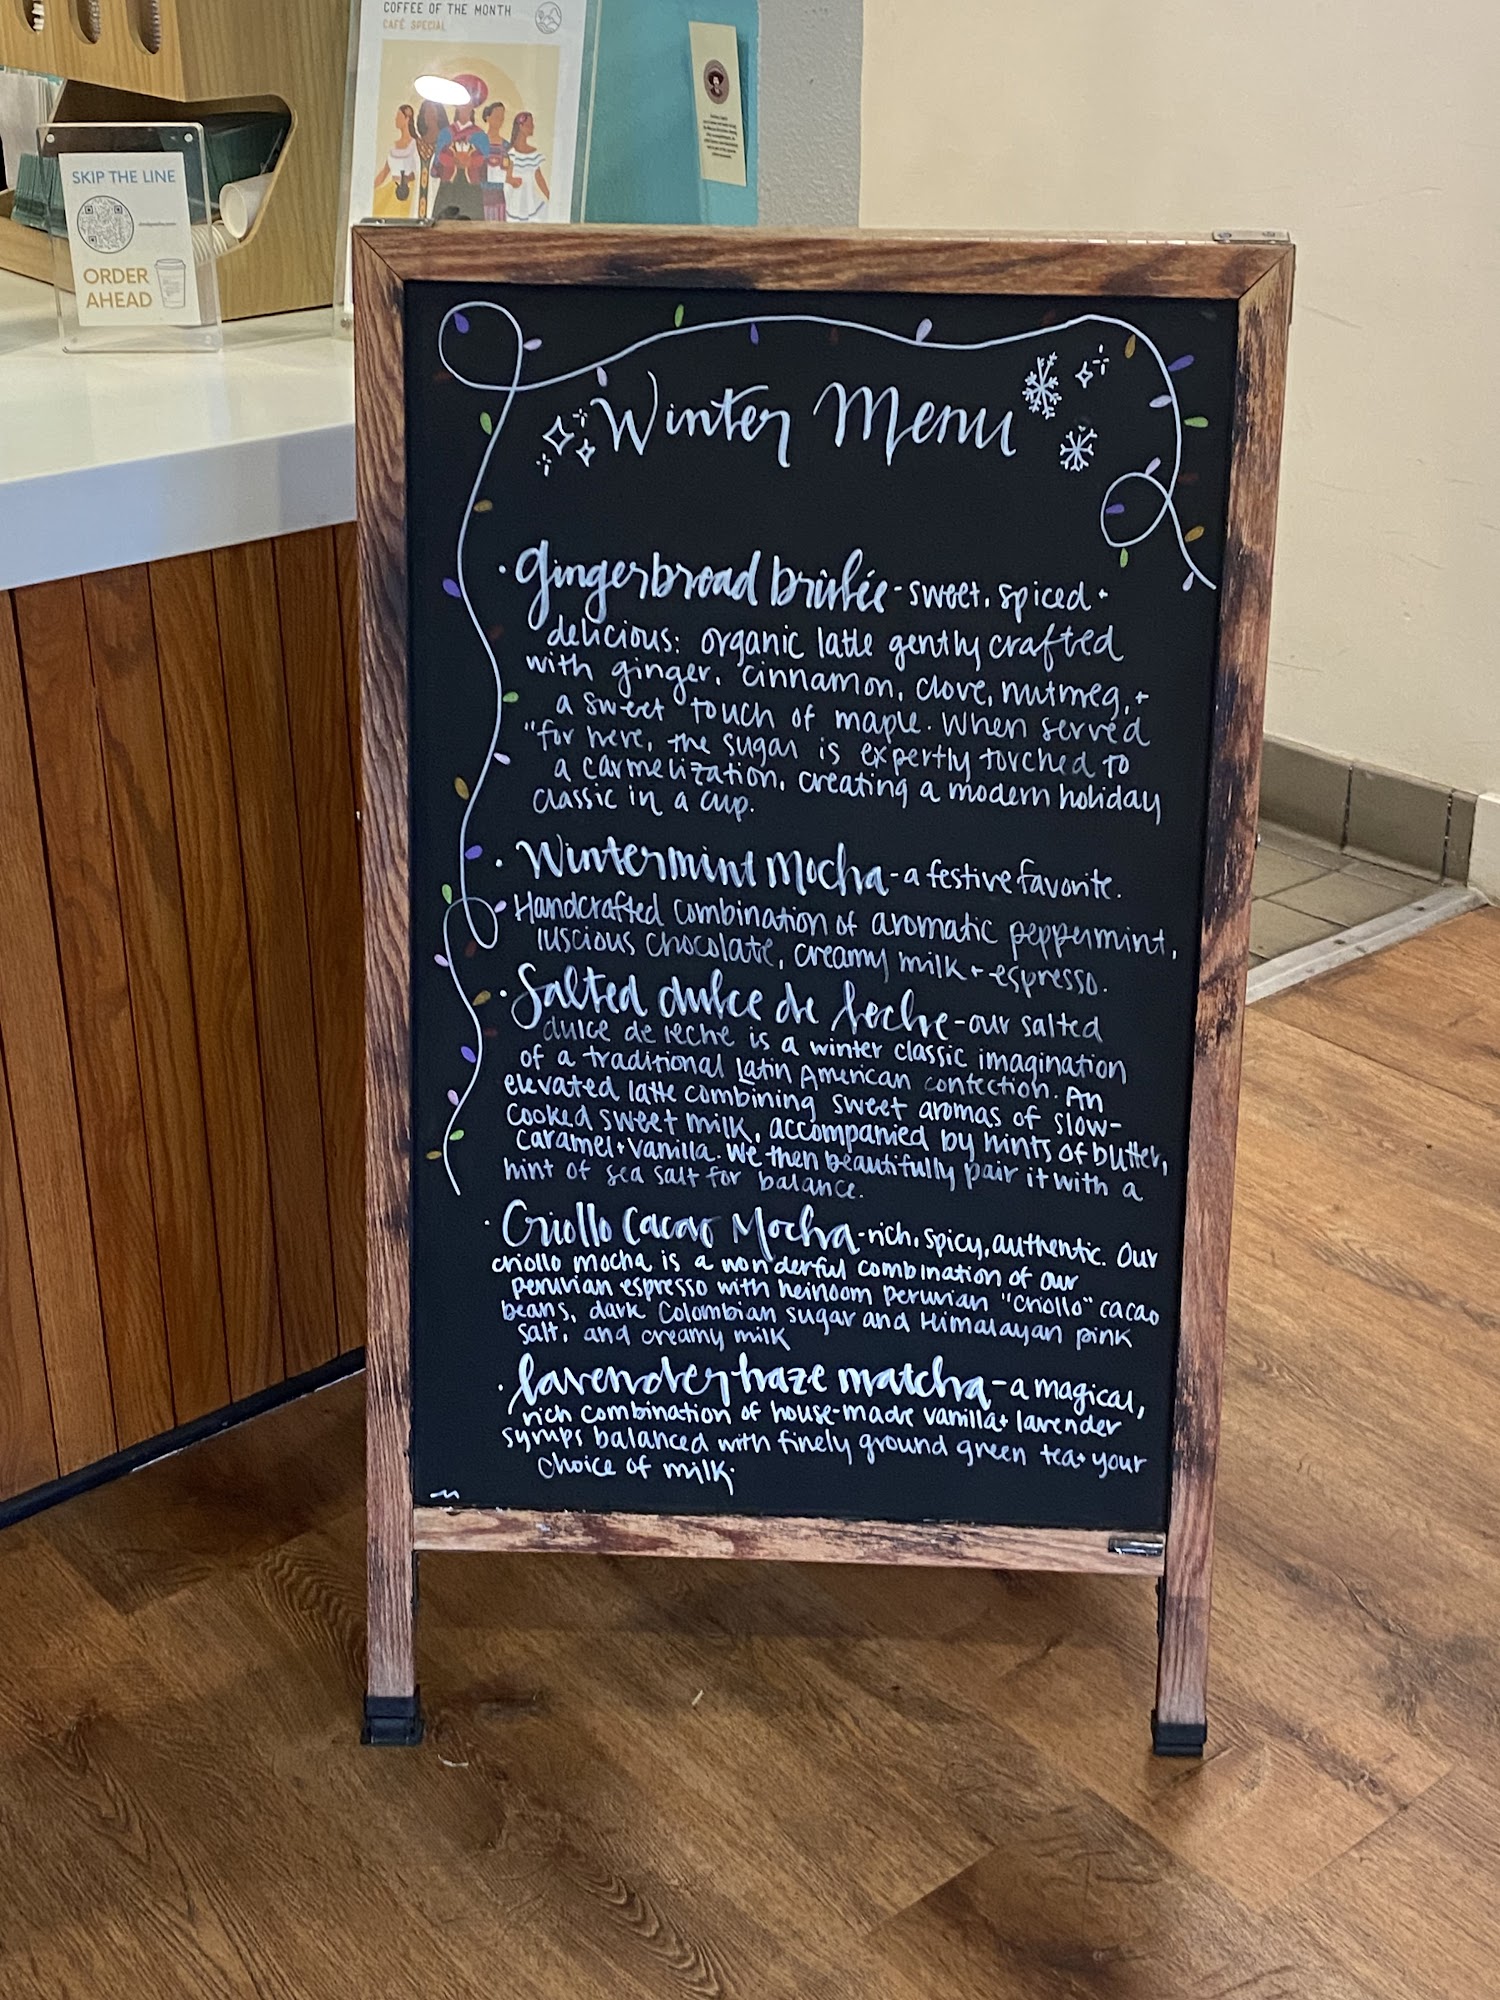 COFFEE OF THE MONTH
CAFÉ SPECIAL
SKIP THE LINE
ORDER
AHEAD
Winter Menu
• gingerbread brûlée - sweet, spiced +
delicious: organic latte gently crafted
with ginger, cinnamon, clove, nutmeg, +
a sweet touch of maple. When served
"for here, the sugar is expertly torched to
a carmelization, creating a modern holiday
classic in a cup.
• Wintermint Mocha - a festive favorite.
Handcrafted combination of aromatic peppermint,
luscious chocolate, creamy milk + espresso.
• Salted dulce de leche - our salted
dulce de leche is a winter classic imagination
of a traditional Latin American confection. An
elevated latte combining sweet aromas of slow-
cooked sweet milk, accompanied by hints of butter,
caramel + vanilla. We then beautifully pair it with a
hint of sea salt for balance.
• Criollo Cacao Mocha - rich, spicy, authentic. Our
criollo mocha is a wonderful combination of our
peruvian espresso with heirloom peruvian "criollo" cacao
beans, dark Colombian sugar and Himalayan pink
salt, and creamy milk
• lavender haze matcha - a magical,
rich combination of house-made vanilla + lavender
syrups balanced with finely ground green tea + your
choice of milk.